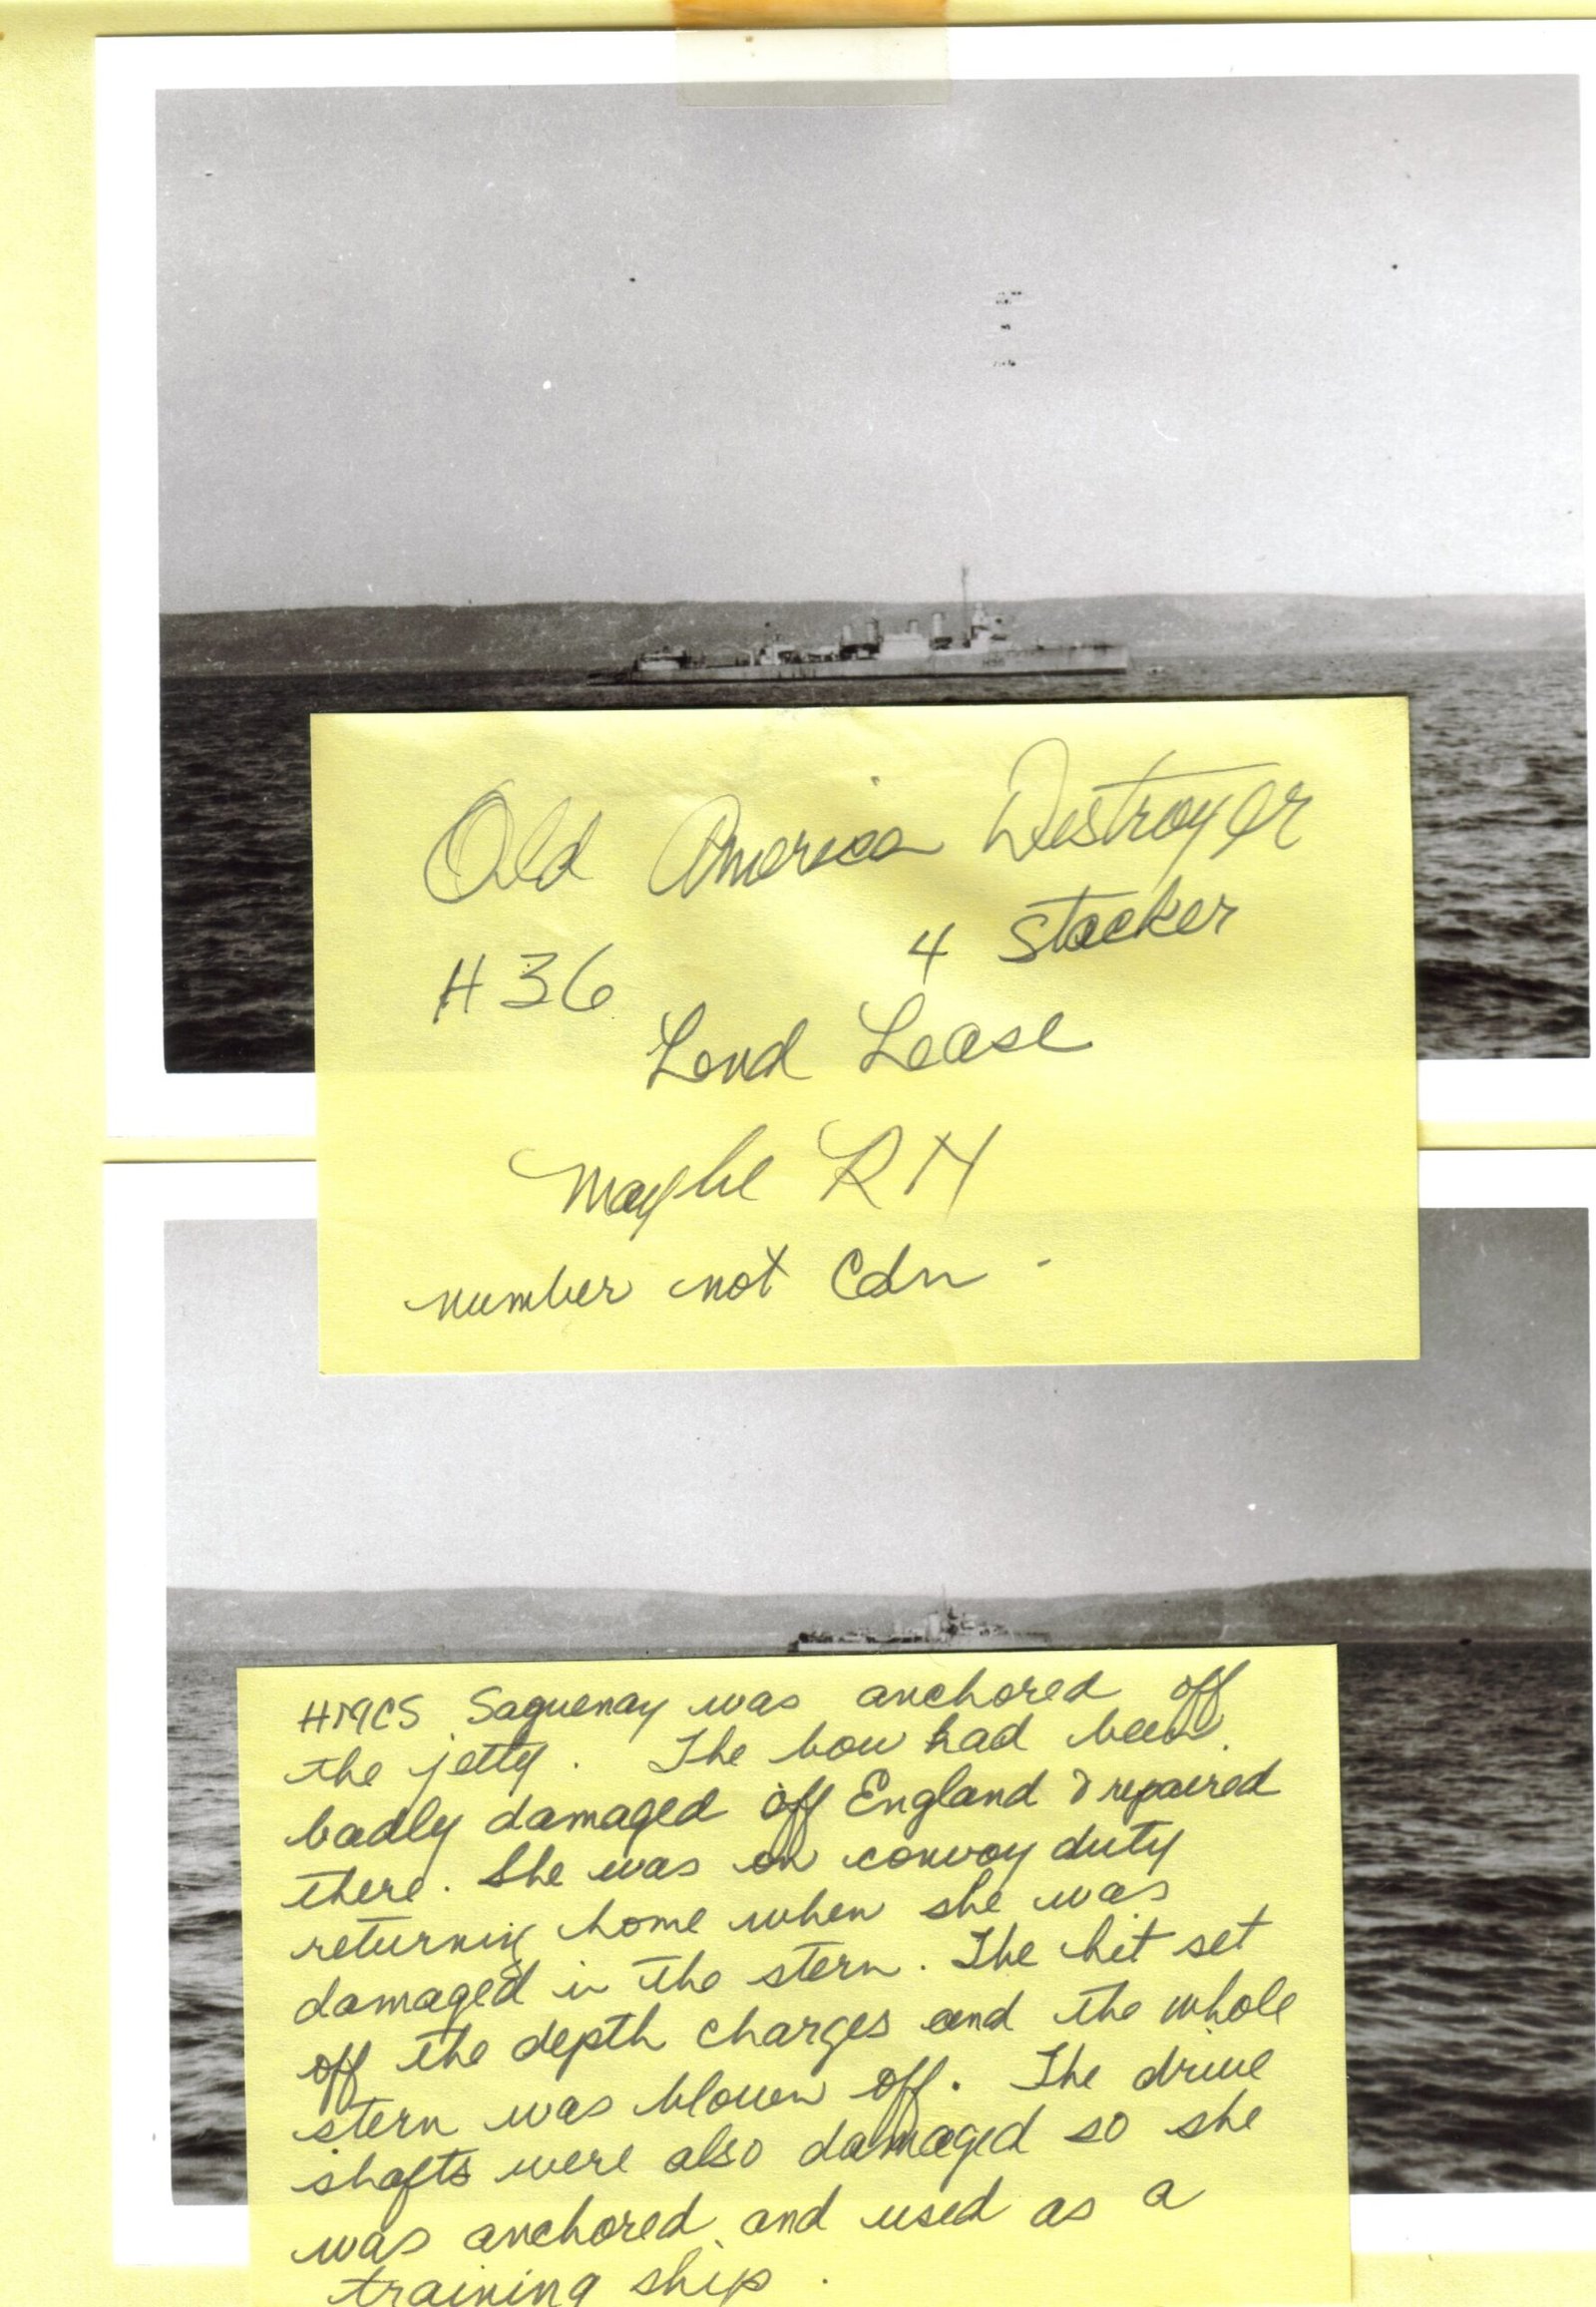 Old America Destroyer
4 Stacker
H36
Lend Lease
Maybe RN
number not Cdn -
HMCS Saguenay was anchored off
the jetty. The bow had been
badly damaged off England & repaired
there. She was on convoy duty
returning home when she was
damaged in the stern. The hit set
off the depth charges and the whole
stern was blown off. The drive
shafts were also damaged so she
was anchored and used as a
training ship.